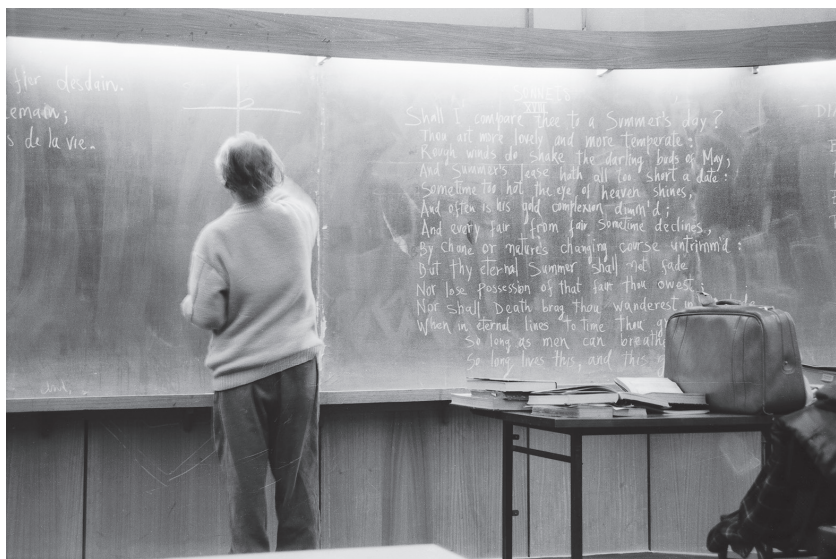 fier desdain.
emain;
s de la vie.
SONNET
XVIII
Shall I compare thee to a Summer's day?
Thou art more lovely and more temperate:
Rough winds do shake the darling buds of May,
And Summer's lease hath all too short a date:
Sometime too hot the eye of heaven shines,
And often is his gold complexion dimm'd;
And every fair from fair sometime declines,
By chance or nature's changing course untrimm'd:
But thy eternal Summer shall not fade
Nor lose possession of that fair thou owest
Nor shall Death brag thou wanderest in
When in eternal lines to time thou g
So long as men can breath
So long lives this, and this